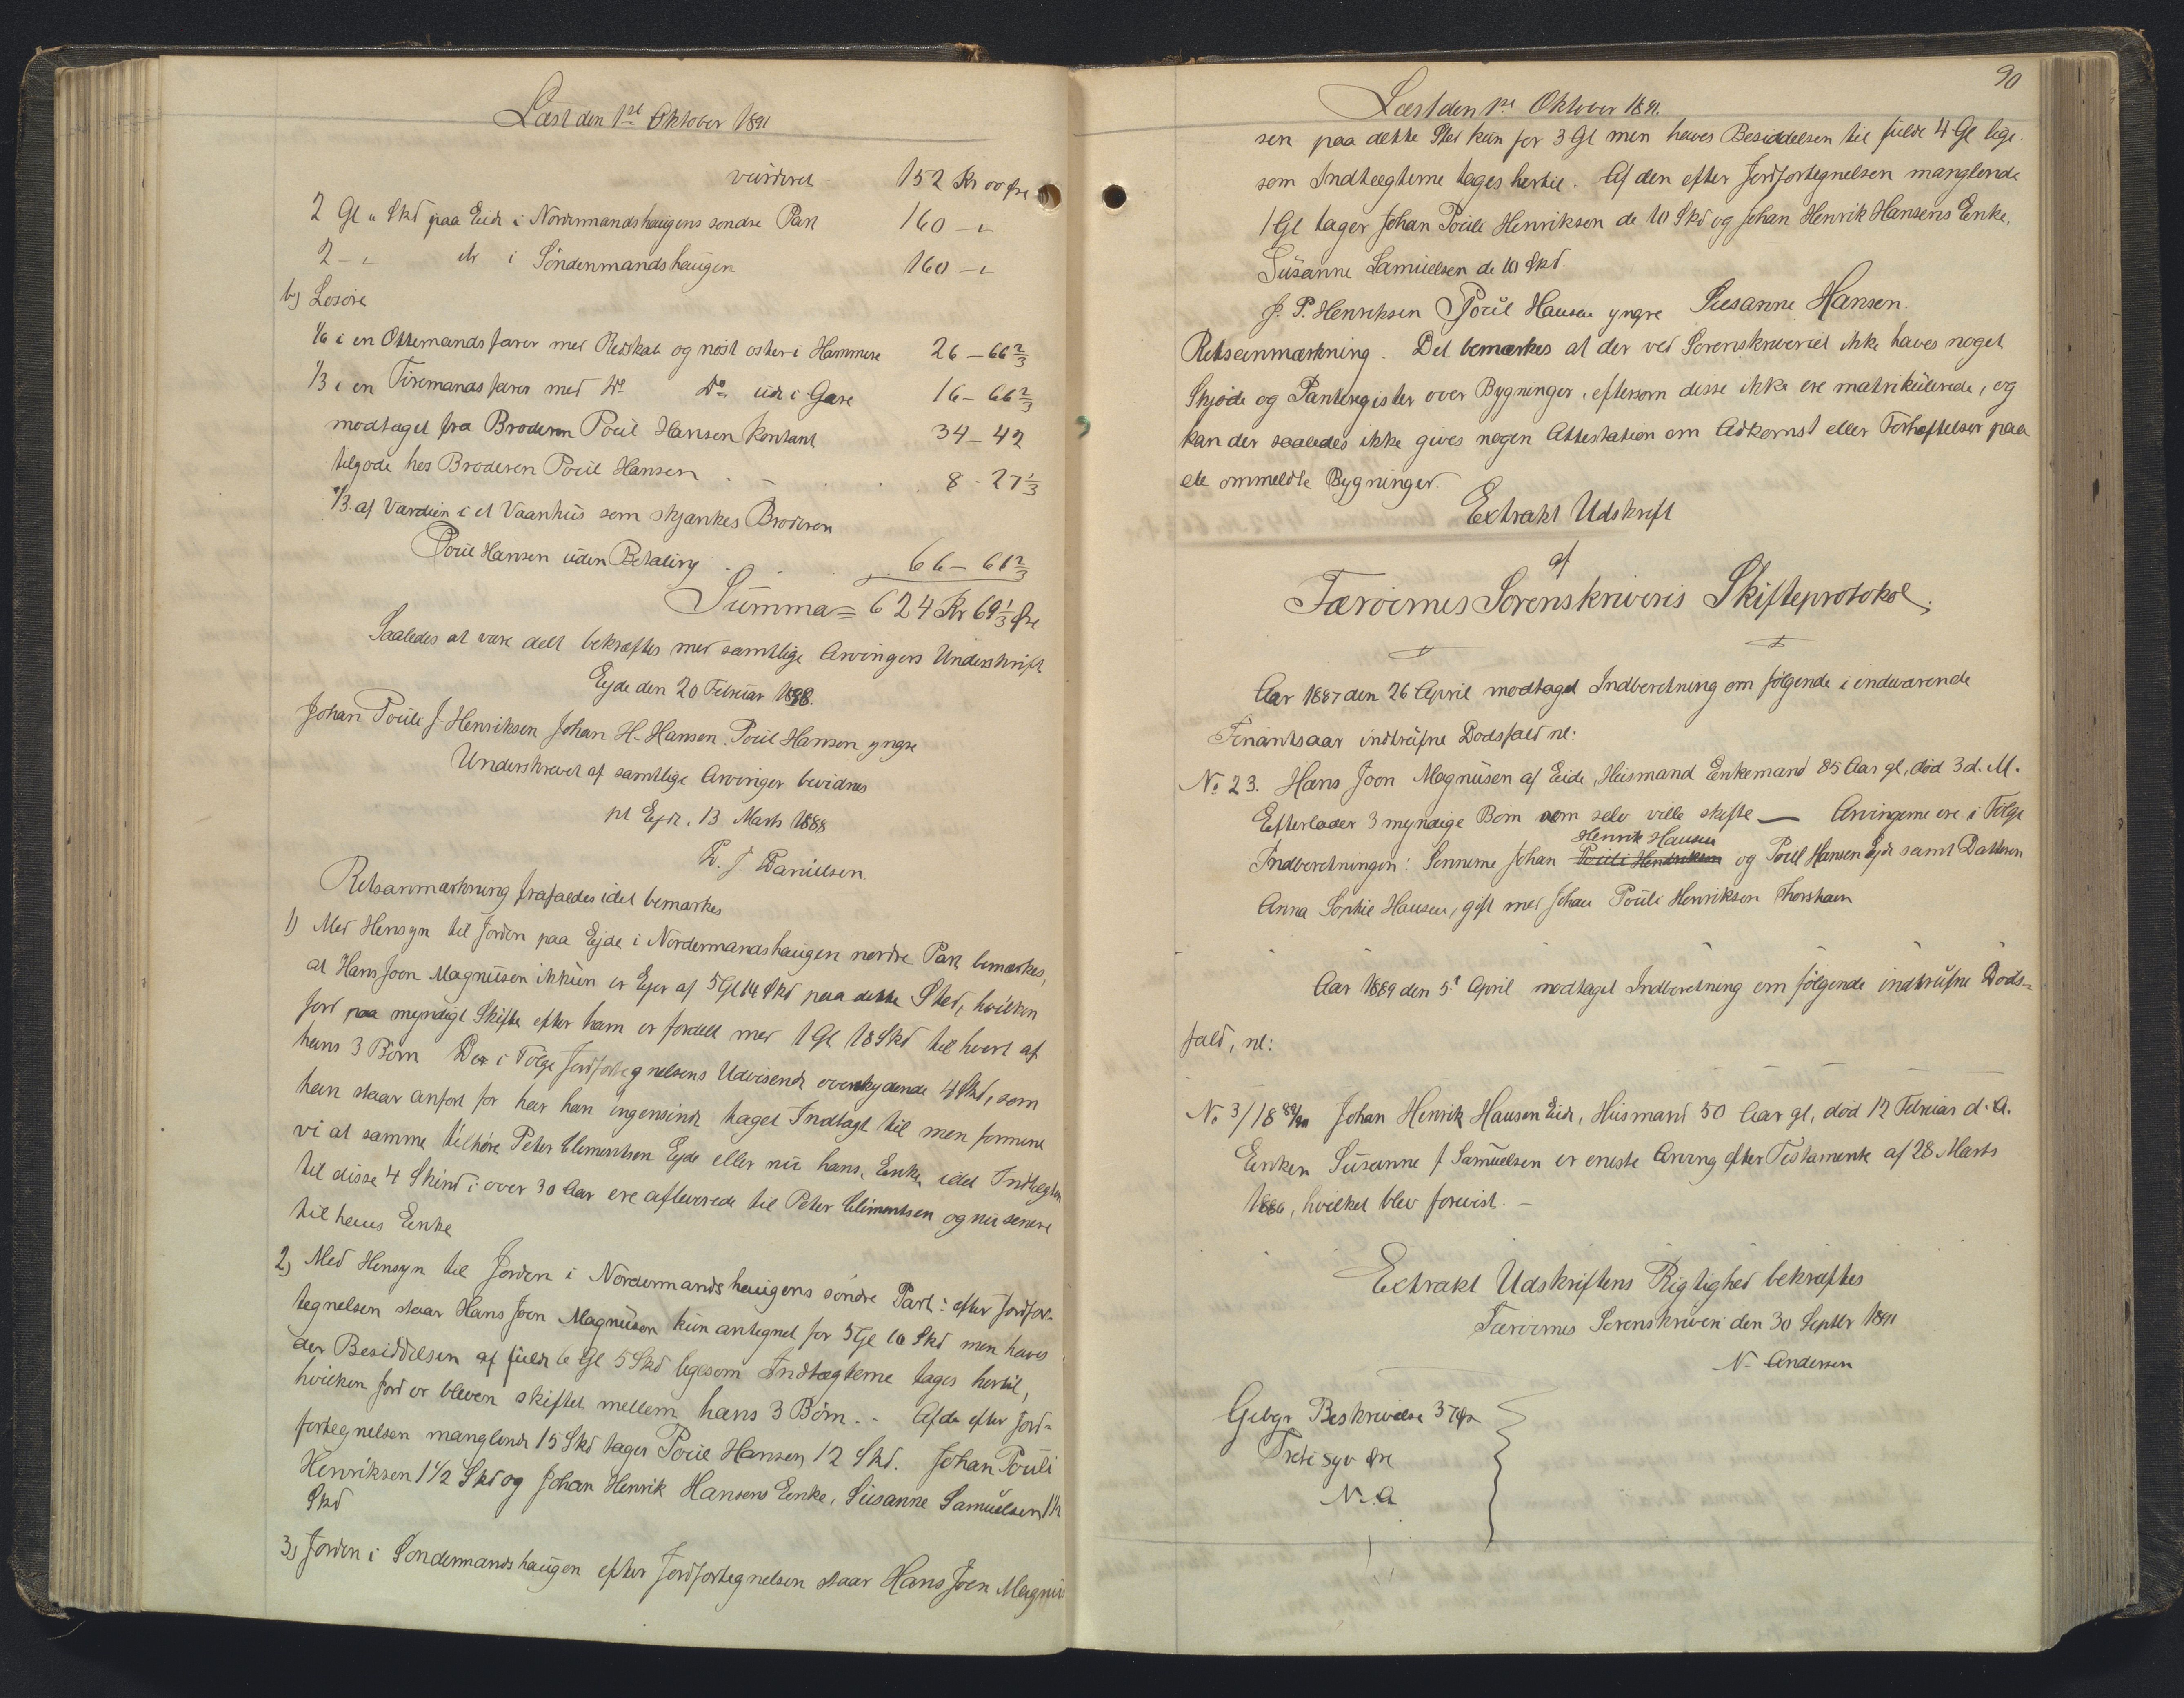 Læst den 1ste Oktober 1891
vurderet 152 Kr 00 Øre
2 Gl " Skd paa Eide i Nordmandshaugens søndre Part 160 - "
2 - " do i Søndenmandshaugen 160 - "
b) Løsøre
1/6 i en Ottemandsfarer med Redskab og nøst øster i Hammere 26 - 66 2/3
1/3 i en Firemandsfarer med Do Do ude i Gare 16 - 66 2/3
modtaget fra Broderen Poul Hansen kontant 34 - 42
tilgode hos Broderen Poul Hansen 8 - 27 1/3
1/3 af Værdien i et Vaanhus som skjænkes Broderen
Poul Hansen uden Betaling 66 - 66 2/3
Summa = 624 Kr 69 1/3 Øre
Saaledes at være delt bekræftes med samtlige Arvingers Underskrift
Ejde den 20 Februar 1888.
Johan Pouli J. Henriksen Johan H. Hansen. Poul Hansen yngre
Underskrevet af samtlige Arvinger bevidnes
pt Ejde. 13 Marts 1888
P. J. Danielsen.
Retsanmærkning frafaldes idet bemærkes
1) Med Hensyn til Jorden paa Ejde i Nordenmandshaugen nordre Part bemærkes,
at Hans Joen Magnusen ikkun er Ejer af 5 Gl 14 Skd paa dette Sted, hvilken
Jord paa myndigt Skifte efter ham er fordelt med 1 Gl 18 Skd til hvert af
hans 3 Børn De i Følge Jordfortegnelsens Udvisende overskydende 4 Skd, som
han staar anført for har han ingensinde taget Indtægt til men formene
vi at samme tilhøre Peter Clementsen Ejde eller nu hans Enke, idet Indtægten
til disse 4 Skind i over 30 Aar ere afleverede til Peter Clementsen og nu senere
til hans Enke
2) Med Hensyn til Jorden i Nordenmandshaugens søndre Part: efter Jordfor-
tegnelsen staar Hans Joen Magnusen kun antegnet for 5 Gl 10 Skd men haves
der Besiddelsen af fulde 6 Gl 5 Skd ligesom Indtægterne tages hertil,
hvilken Jord er bleven skiftet mellem hans 3 Børn. - Af de efter Jord-
fortegnelsen manglende 15 Skd tager Poul Hansen 12 Skd. Johan Pouli
Henriksen 1 1/2 Skd og Johan Henrik Hansens Enke, Susanne Samuelsen 1 1/2
Skd
3) Jorden i Søndenmandshaugen efter Jordfortegnelsen staar Hans Joen Magnu
90
Læst den 1ste Oktober 1891.
sen paa dette Sted kun for 3 Gl men haves Besiddelsen til fulde 4 Gl lige-
som Indtægterne tages hertil. Af den efter Jordfortegnelsen manglende
1 Gl tager Johan Pouli Henriksen de 10 Skd og Johan Henrik Hansens Enke,
Susanne Samuelsen de 10 Skd.
J. P. Henriksen Poul Hansen yngre Susanne Hansen.
Retsanmærkning. Det bemærkes at der ved Sorenskriveriet ikke haves noget
Skjøde og Panteregister over Bygninger, eftersom disse ikke ere matrikulerede, og
kan der saaledes ikke gives nogen Attestation om Adkomst eller Forhæftelser paa
de ommeldte Bygninger.
Extrakt Udskrift
af
Færøernes Sorenskriveris Skifteprotokol.
Aar 1887 den 26 April modtaget Indberetning om følgende i indeværende
Finantsaar indtrufne Dødsfald nl:
No 23. Hans Joen Magnusen af Eide, Husmand Enkemand 85 Aar gl, død 3 d. M.
Efterlader 3 myndige Børn som selv ville skifte — Arvingerne ere i Følge
Henrik Hansen
Indberetningen: Sønnerne Johan Pouli Hendriksen og Poul Hansen Ejde samt Datteren
Anna Sophie Hansen, gift med Johan Pouli Henriksen Thorshavn
Aar 1889 den 5t April modtaget Indberetning om følgende indtrufne Døds-
fald, nl:
No 3/18 89/90 Johan Henrik Hansen Eide, Husmand 50 Aar gl, død 12 Februar d. A.
Enken Susanne f Samuelsen er eneste Arving efter Testamente af 28 Marts
1886, hvilket blev forevist. -
Extrakt Udskriftens Rigtighed bekræftes
Færøernes Sorenskriveri den 30 Septbr 1891
N. Andersen
Gebyr Beskrivelse 37 Øre
Treti syv Øre
N. A